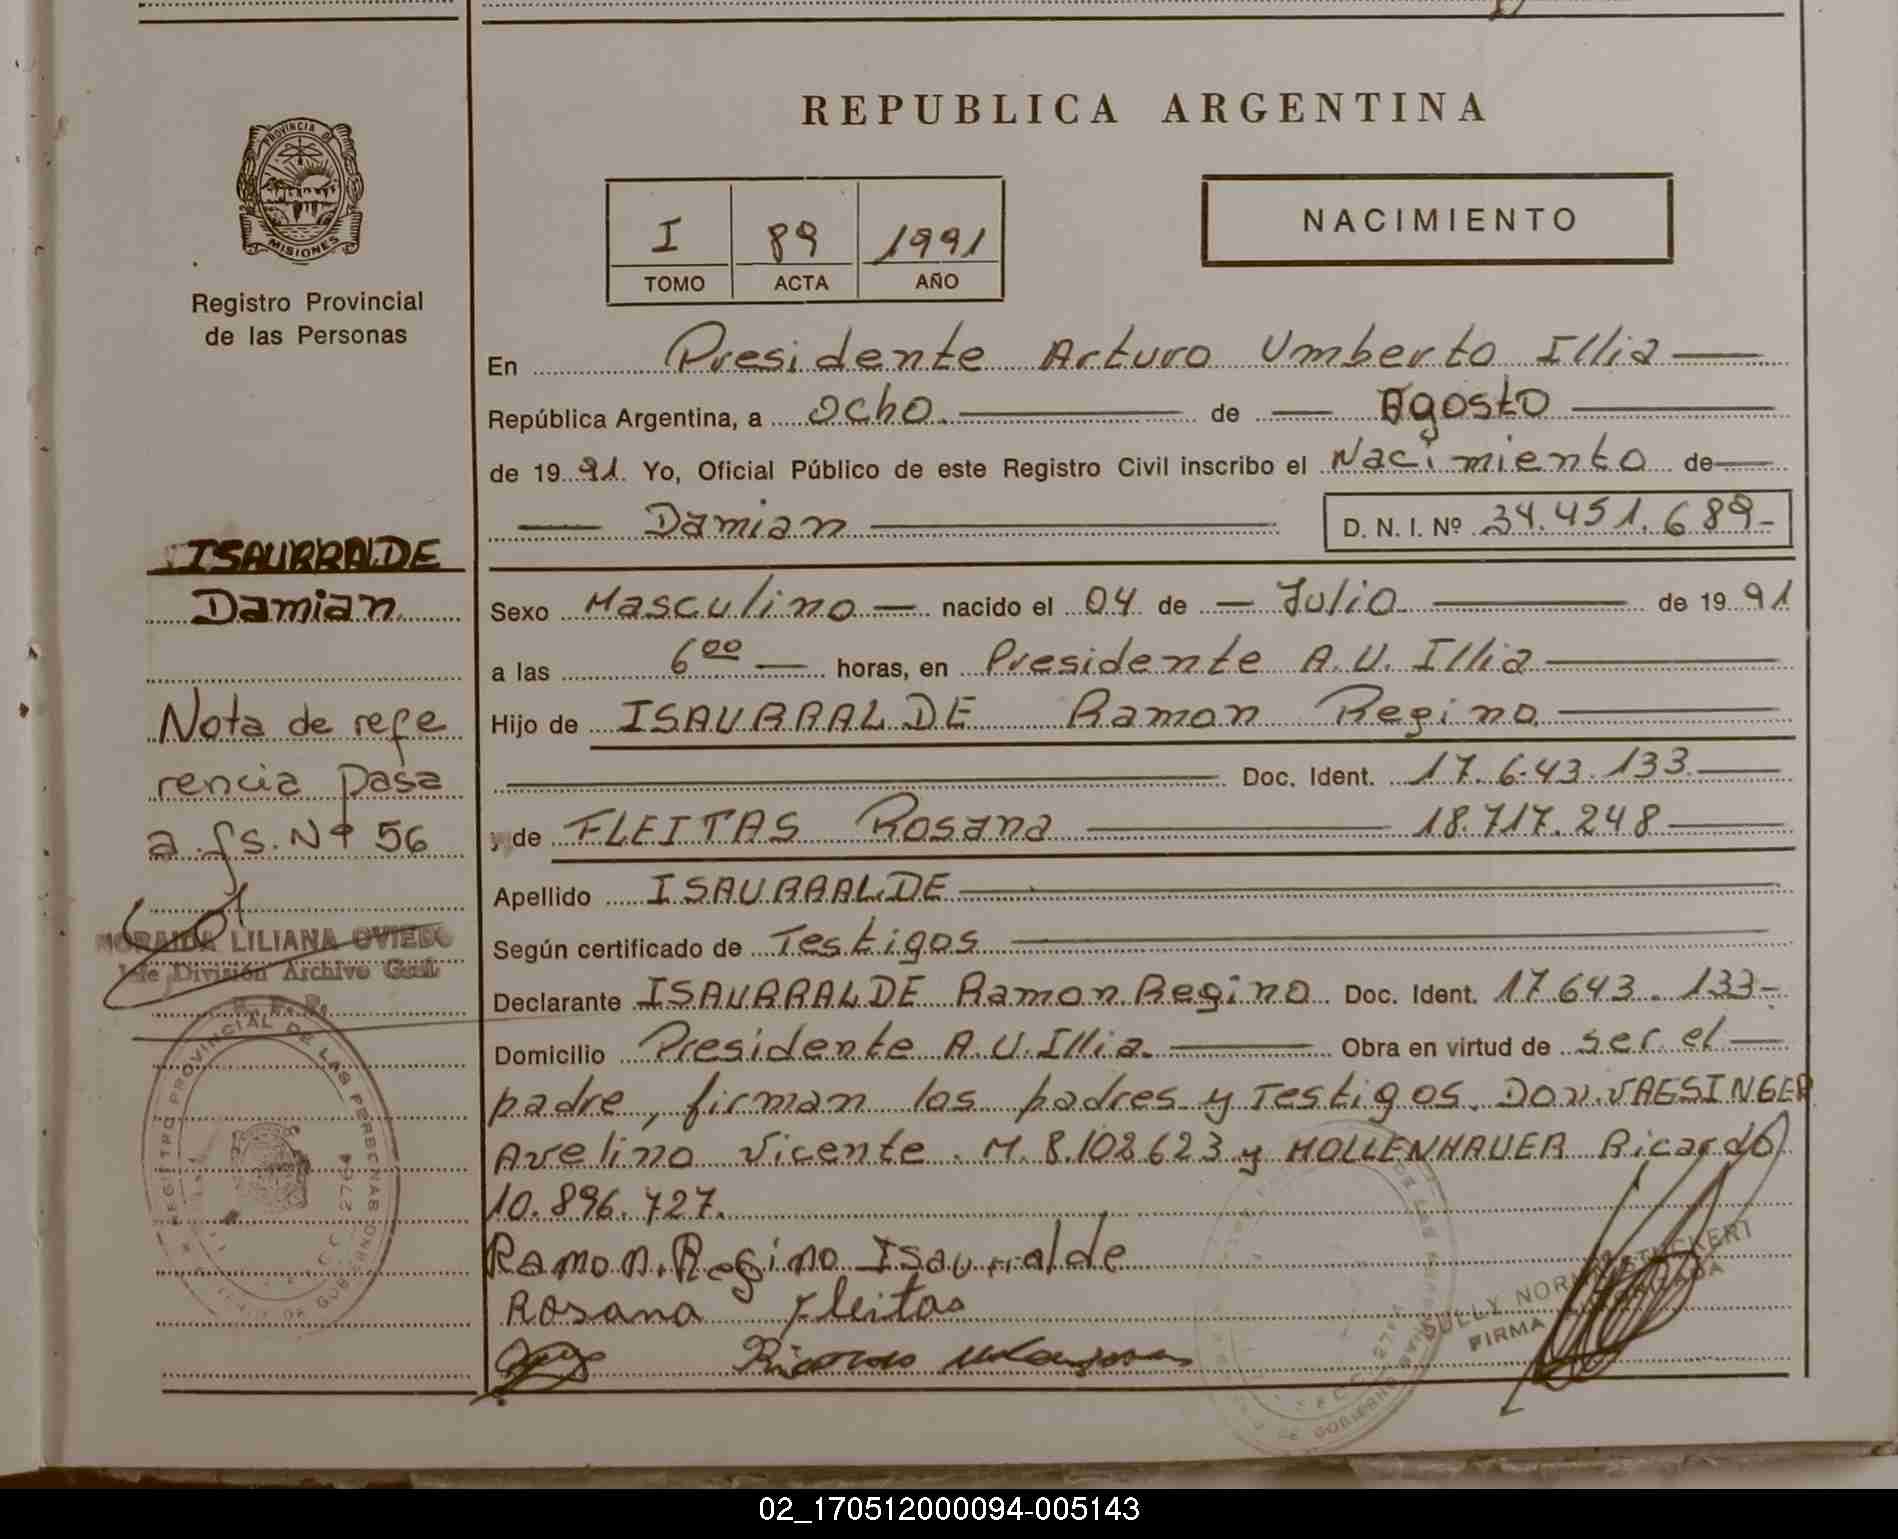 REPUBLICA ARGENTINA
PROVINCIA D
MISIONES
Registro Provincial
de las Personas
I 89 1991
TOMO ACTA AÑO
NACIMIENTO
En Presidente Arturo Umberto Illia
República Argentina, a ocho de Agosto
de 1991 Yo, Oficial Público de este Registro Civil inscribo el Nacimiento de
Damian D. N. I. Nº 34.451.689-
ISAURRALDE
Damian
Nota de refe
rencia pasa
a fs. Nº 56
LILIANA OVIEDO
Jefe División Archivo Gral
Sexo Masculino nacido el 04 de Julio de 1991
a las 6 00 horas, en Presidente A. U. Illia
Hijo de ISAURRALDE Ramon Regino
Doc. Ident. 17.643.133
y de FLEITAS Rosana 18.717.248
Apellido ISAURRALDE
Según certificado de Testigos
Declarante ISAURRALDE Ramon Regino Doc. Ident. 17.643.133-
Domicilio Presidente A.U. Illia. Obra en virtud de ser el
padre, firman los padres y Testigos. Don. VAESINGER
Avelino Vicente. M. 8.102.623 y MOLLENHAUER Ricardo
10.896.727.
Ramon Regino Isaurralde
Rosana Fleitas
Ricardo
REGISTRO PROVINCIAL DE LAS PERSONAS
STUCKERT
FIRMA AUTORIZADA
02_170512000094-005143